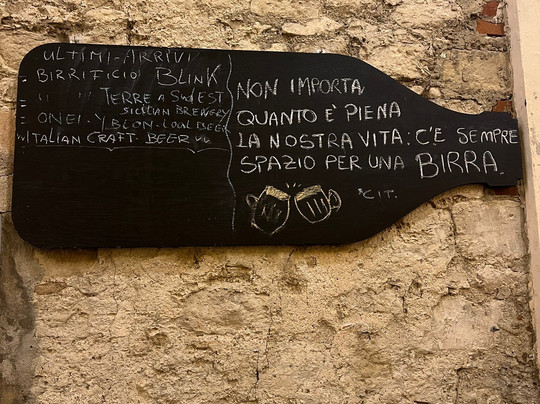 ULTIMI ARRIVI
= BIRRIFICIO BLINK
= " " TERRE A SUD EST
SICILIAN BREWERY
= ONEI.YBLON-LOCAL BEER
ITALIAN CRAFT BEER
NON IMPORTA
QUANTO E' PIENA
LA NOSTRA VITA: C'È SEMPRE
SPAZIO PER UNA BIRRA.
*CIT.